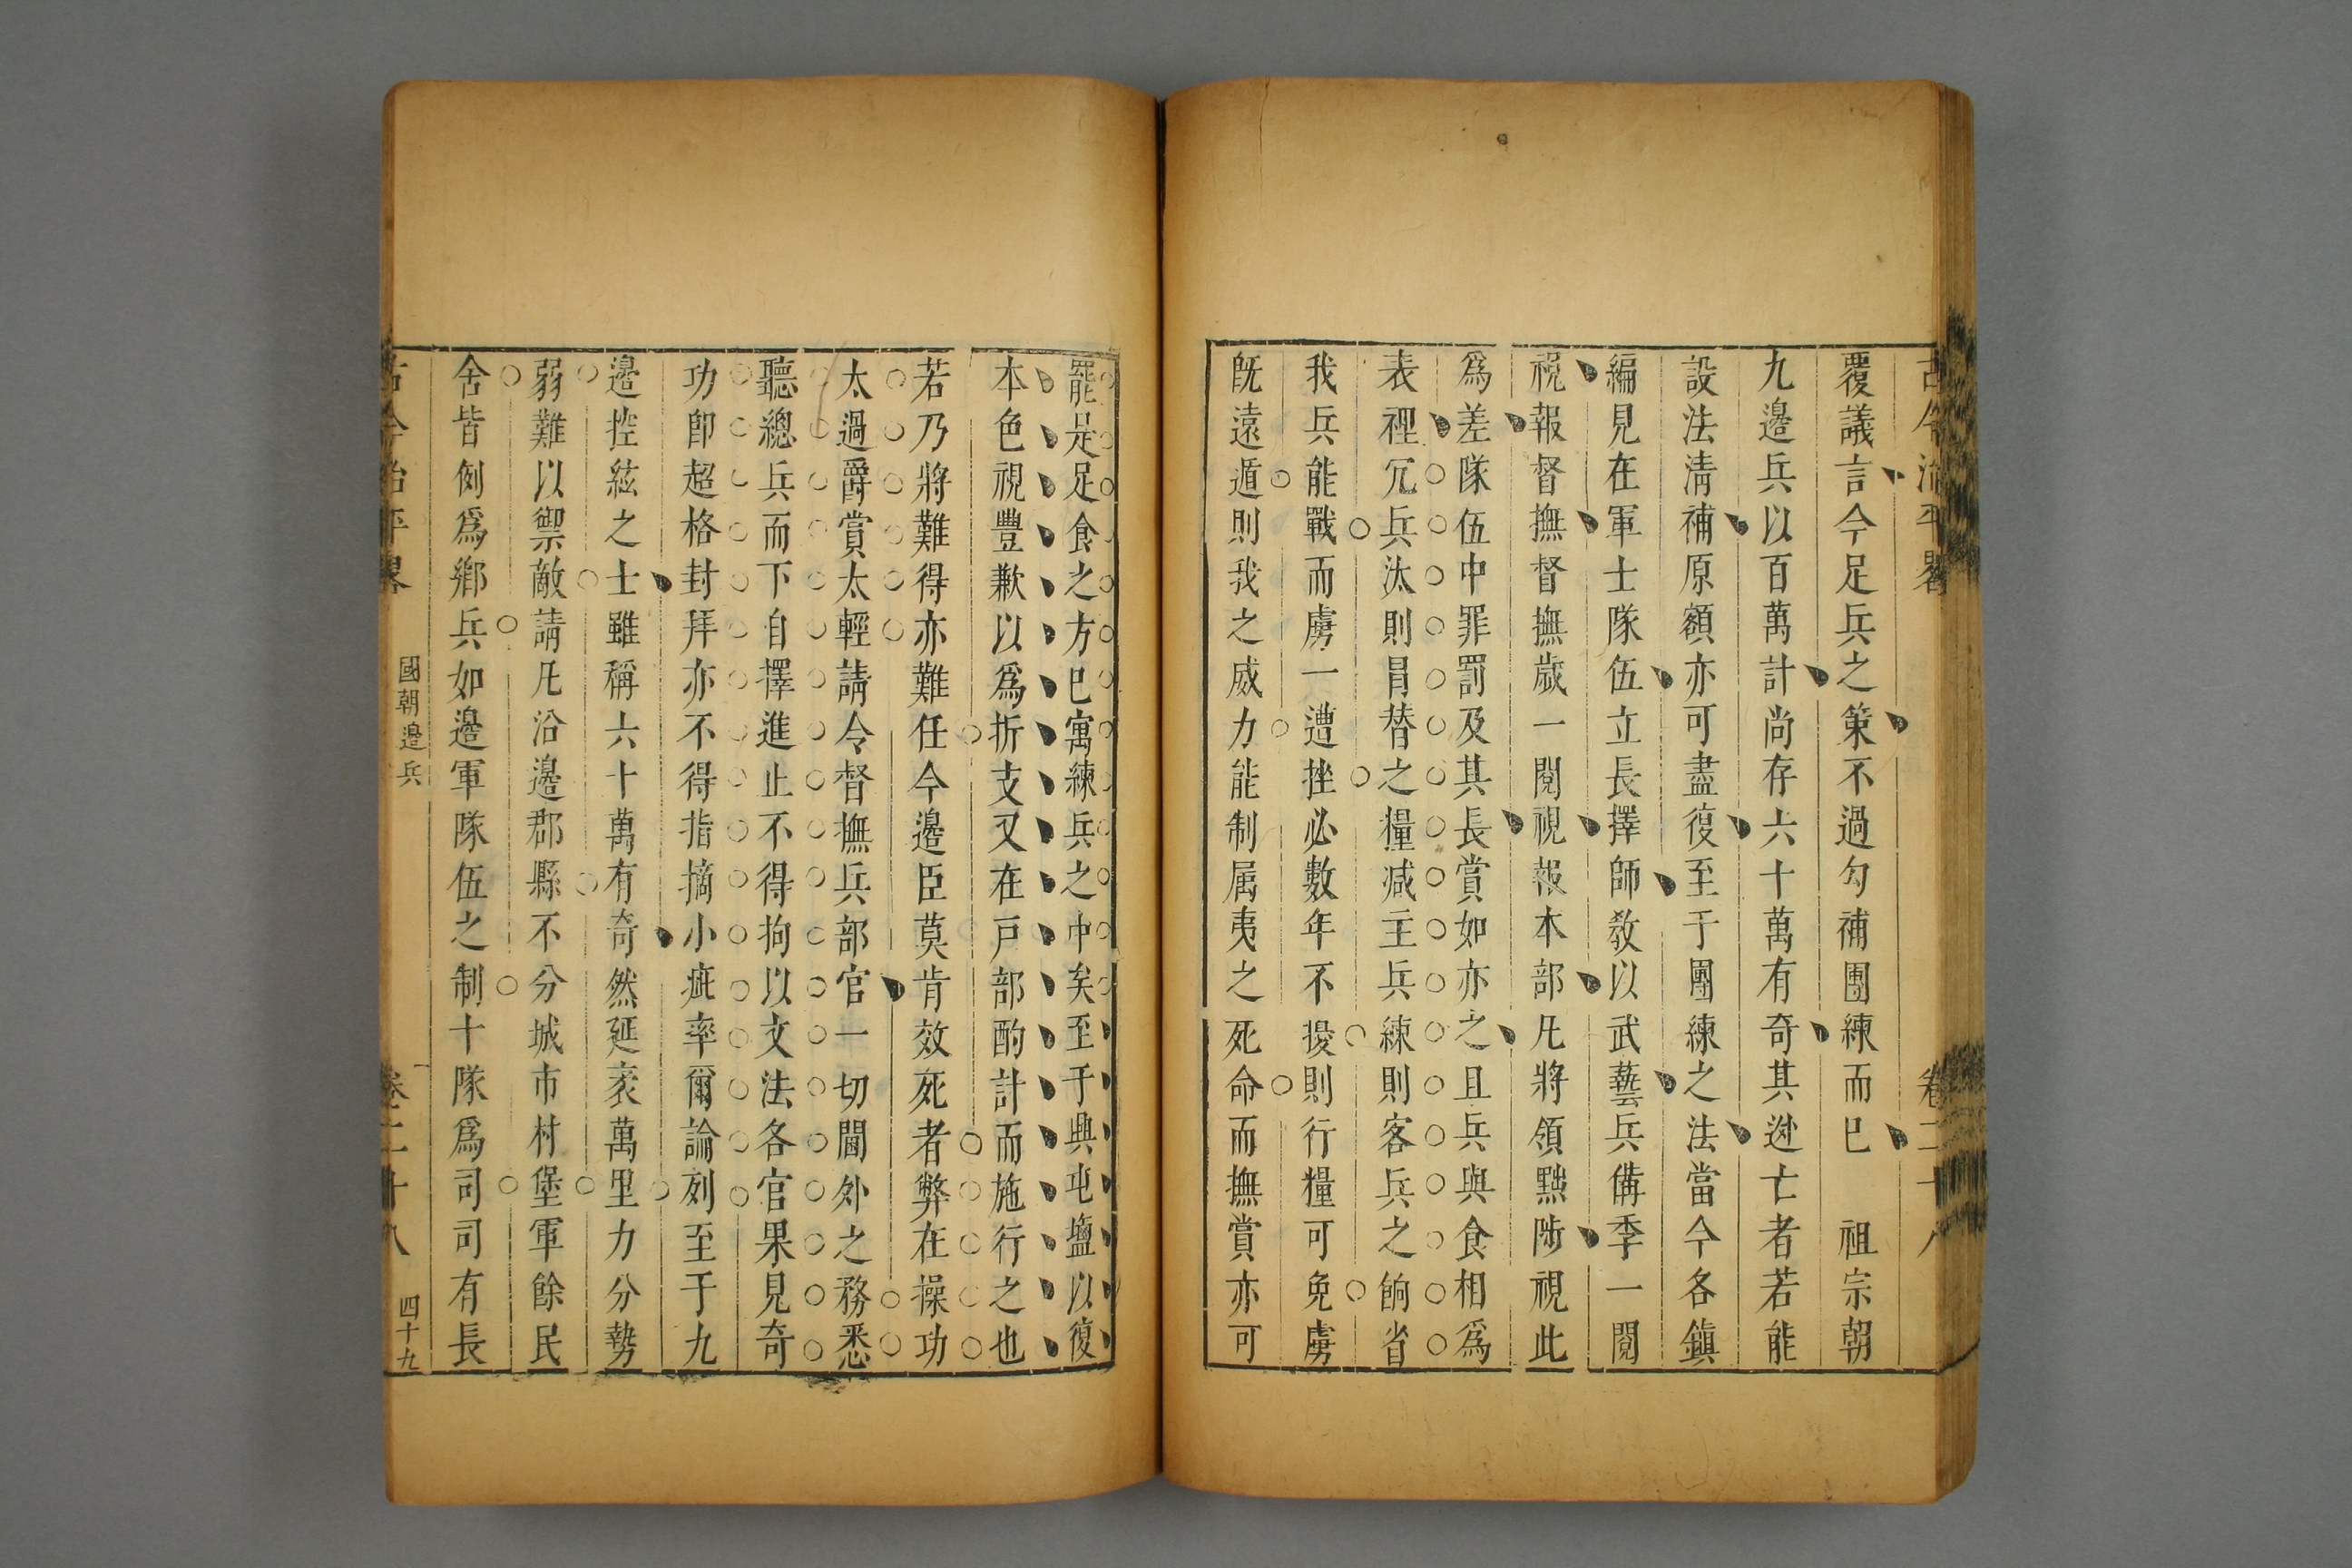 古今治平畧 卷二十八
覆議言今足兵之策不過勾補團練而巳 祖宗朝
九邊兵以百萬計尚存六十萬有奇其逃亡者若能
設法清補原額亦可盡復至于團練之法當今各鎮
編見在軍士隊伍立長擇師教以武藝兵備季一閱
視報督撫督撫歲一閱視報本部凡將領黜陟視此
為差隊伍中罪罰及其長賞如亦之且兵與食相為
表裡冗兵汰則冐替之糧减主兵練則客兵之餉省
我兵能戰而虜一遭挫必數年不擾則行糧可免虜
旣遠遁則我之威力能制属夷之死命而撫賞亦可
罷是足食之方巳寓練兵之中矣至于興屯鹽以復
本色視豐歉以爲折支又在戸部酌計而施行之也
若乃將難得亦難任今邊臣莫肯效死者弊在操功
太過爵賞太輕請令督撫兵部官一切閫外之務悉
聽總兵而下自擇進止不得拘以文法各官果見奇
功卽超格封拜亦不得指摘小疵率爾論列至于九
邊控絃之士雖稱六十萬有奇然延袤萬里力分勢
弱難以禦敵請凡沿邊郡縣不分城市村堡軍餘民
舍皆例爲鄉兵如邊軍隊伍之制十隊爲司司有長
古今治平畧 國朝邊兵 卷二十八 四十九